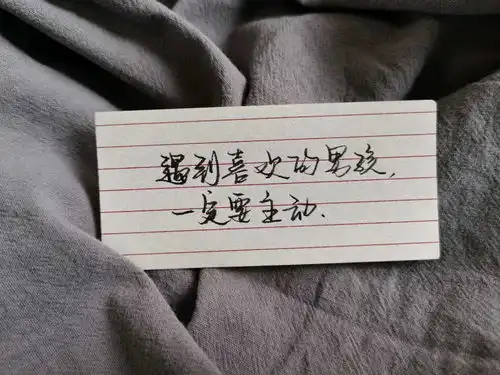 遇到喜欢的男孩,
一定要主动.